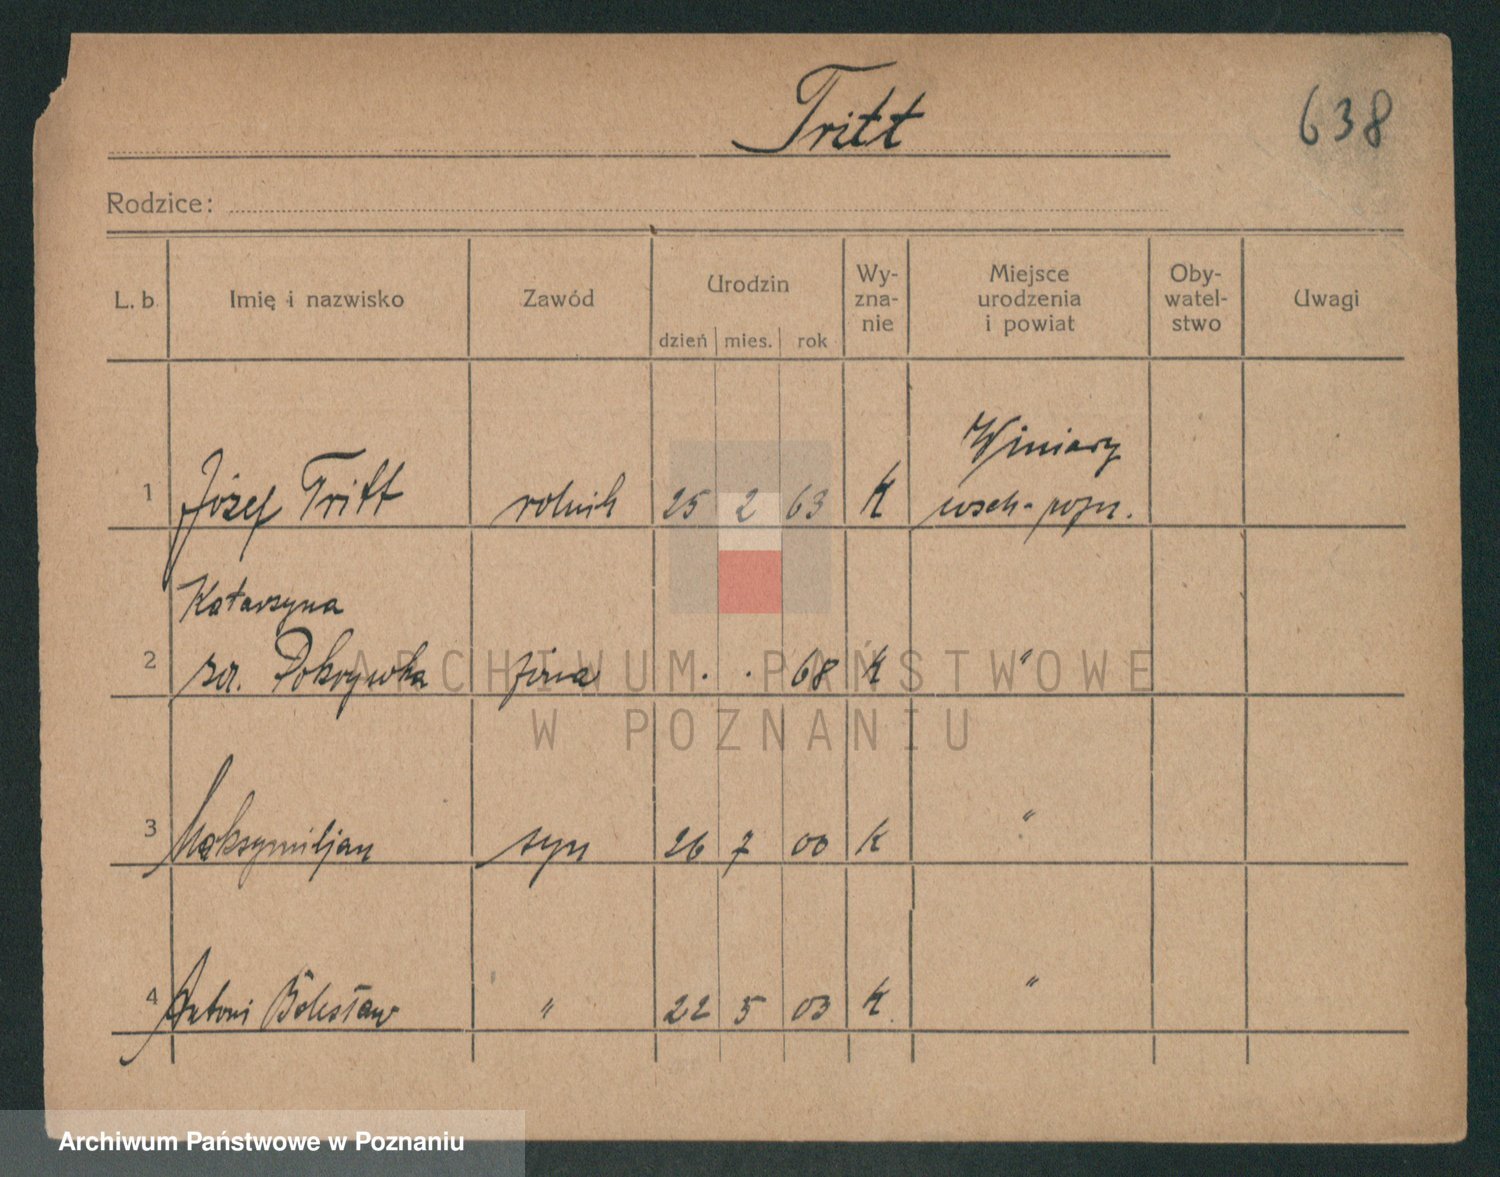 Tritt
638
Rodzice:
L. b. Imię i nazwisko Zawód Urodzin Wyznanie Miejsce urodzenia i powiat Obywatelstwo Uwagi
dzień mies. rok
Winiary
1 Józef Tritt rolnik 25 2 63 K wsch. pozn.
Katarzyna
2 zd. Pokrywka żona . . 68 K "
3 Maksymiljan syn 26 7 00 K "
4 Antoni Bolesław " 22 5 03 K "
ARCHIWUM PAŃSTWOWE
W POZNANIU
Archiwum Państwowe w Poznaniu